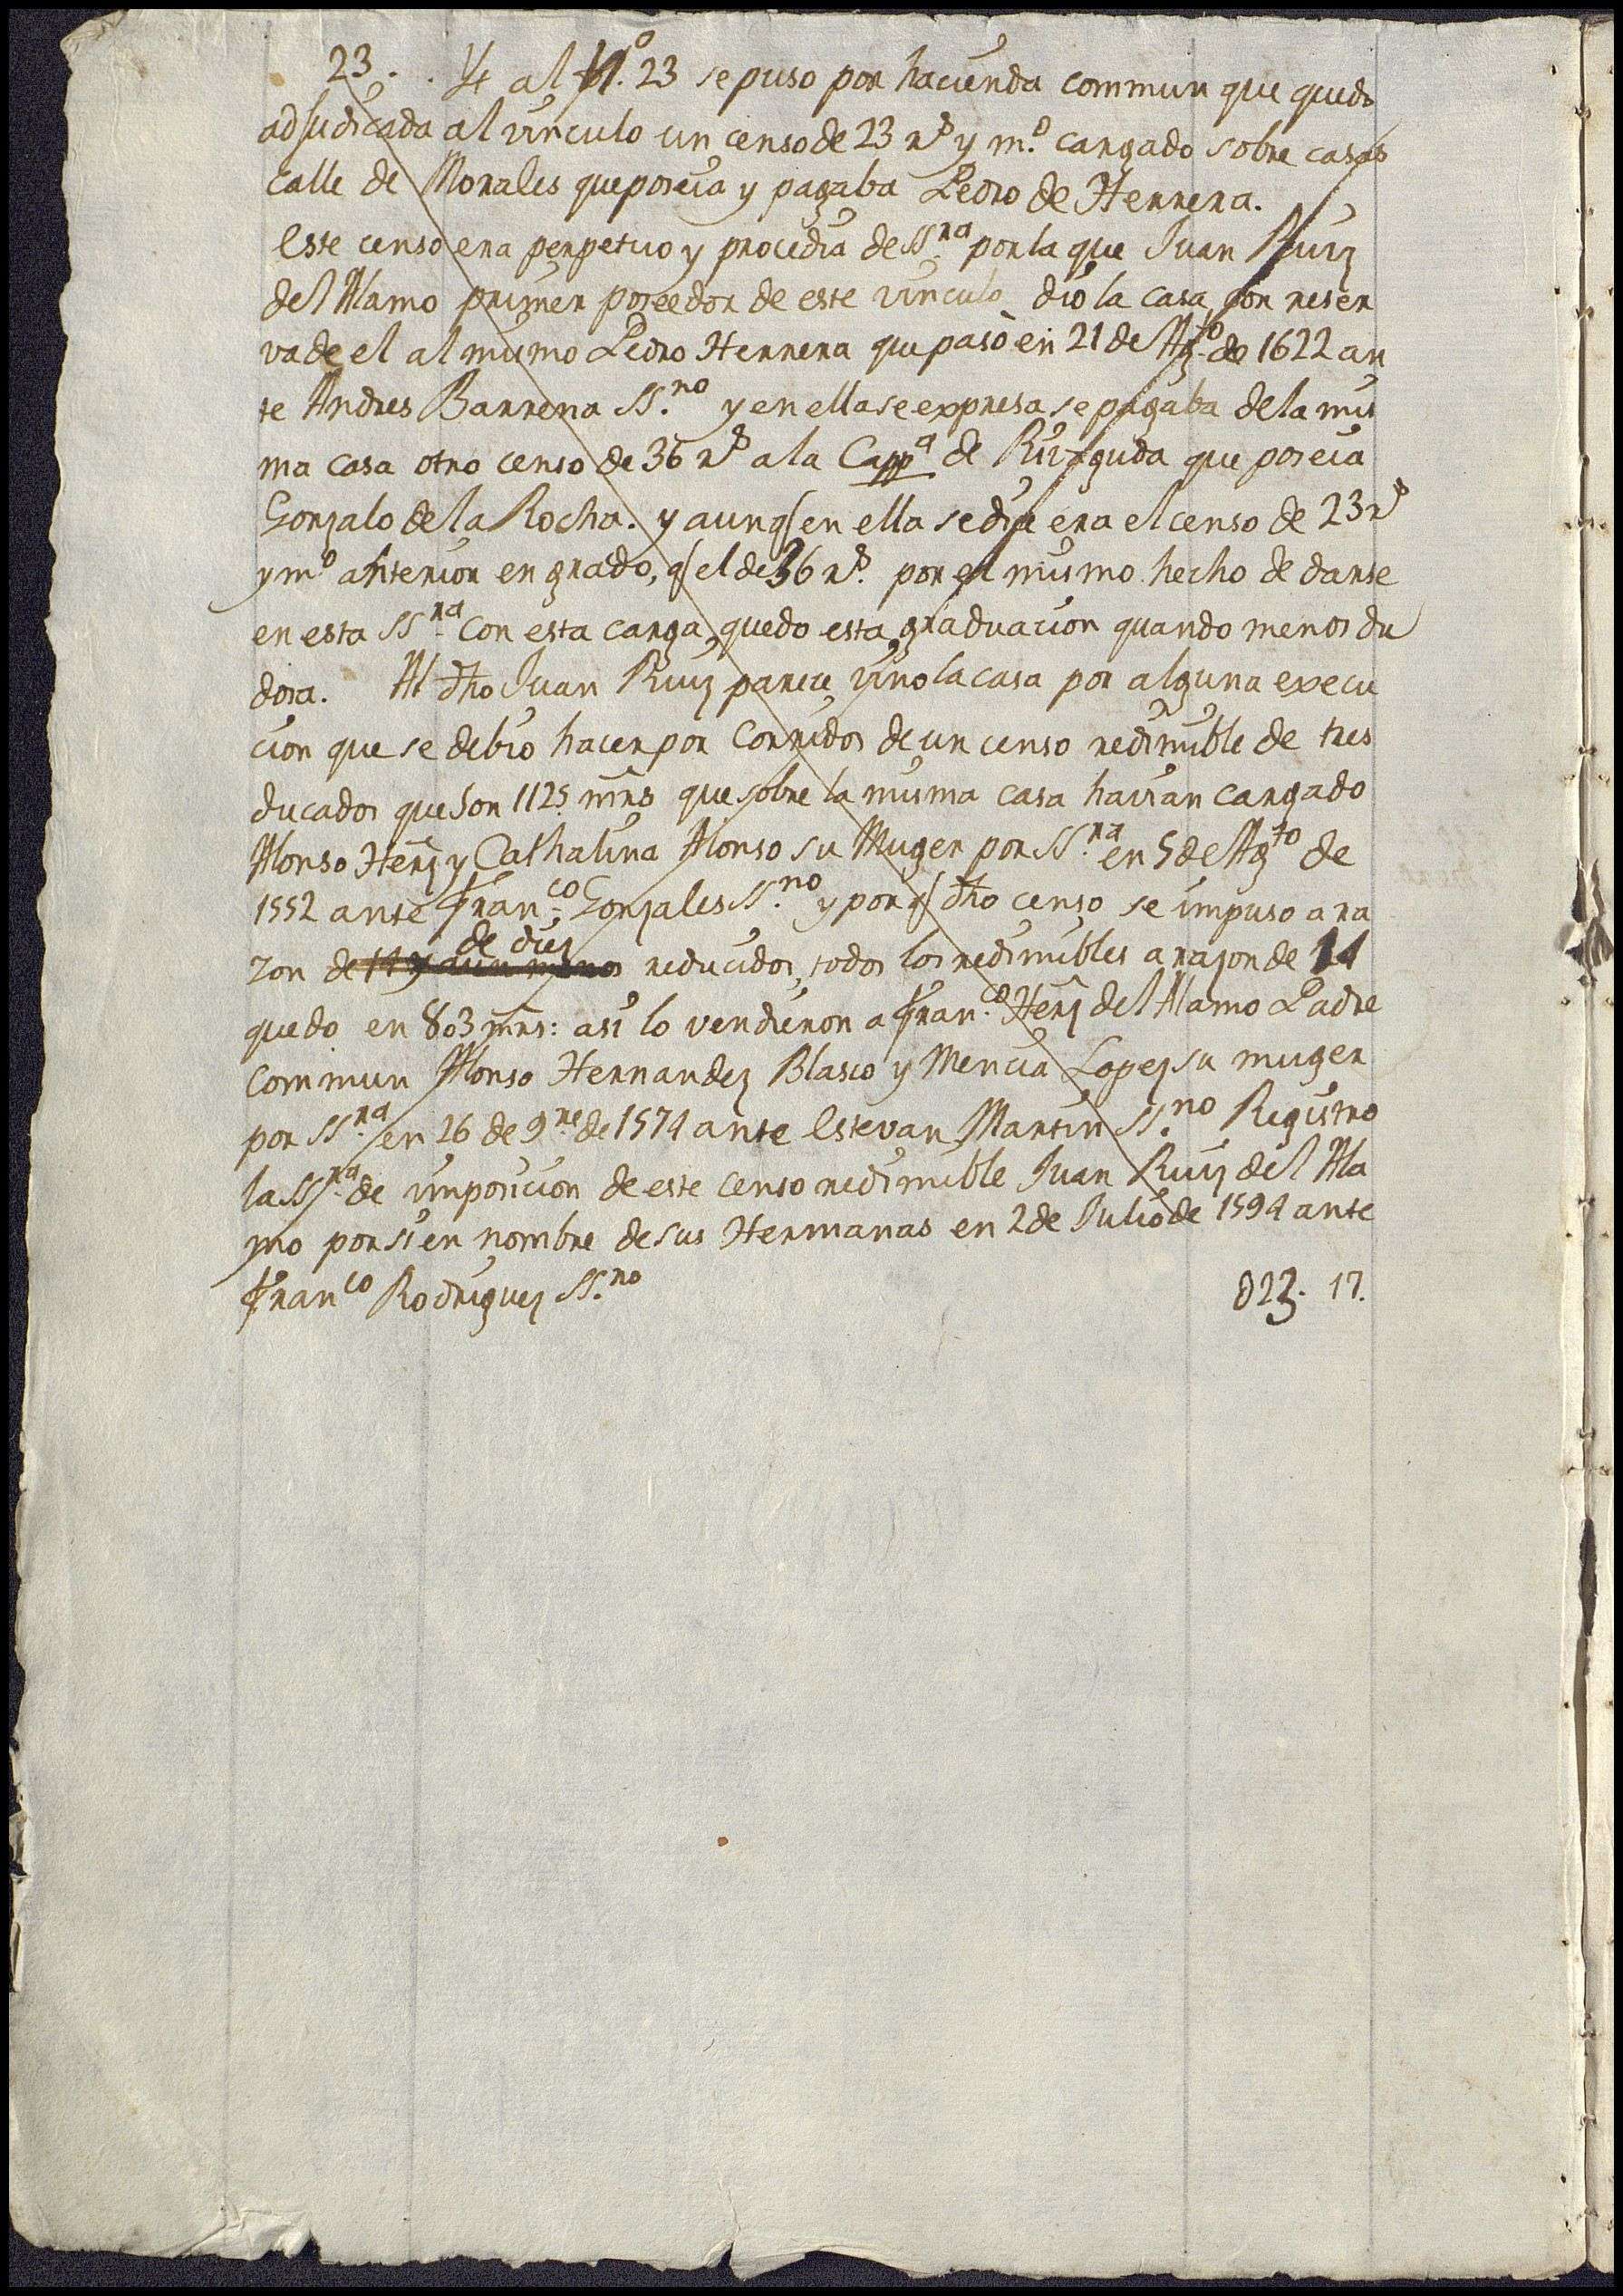 23. . Yt al N.º 23 se puso por hacienda commun que quedo
adjudicada al vinculo un censo de 23 rs y m.º cargado sobre casas
calle de Morales que poseia y pagaba Pedro de Herrera.
Este censo era perpetuo y procedia de SSra por la que Juan Ruiz
del Alamo primer poseedor de este vinculo dio la casa con reser
va de el al mismo Pedro Herrera que pasò en 21 de Agto de 1622 an
te Andres Barrena SS.no y en ella se expresa se pagaba de la mis
ma casa otro censo de 36 rs a la Cappa de que poseia
Gonzalo de la Rocha. y aunq en ella se dija era el censo de 23 rs
y mº anterior en grado, q el de 36 rs. por el mismo hecho de darse
en esta SSra con esta carga, quedo esta graduacion quando menos du
dosa. Al dho Juan Ruiz parece vino la casa por alguna execu
cion que se debio hacer por corridos de un censo redimible de tres
ducados que son 1125 mrs que sobre la misma casa havian cargado
Alonso Herz y Cathalina Alonso su Muger por SS.ra en 5 de Agto de
1552 ante Franco Gonzales SS.no y por q dho censo se impuso a ra
zon de 14 y aun menos de diez reducidos, todos los redimibles a razon de 14
quedo en 803 mrs: asi lo vendieron a Fran.co Herz del Alamo Padre
commun Alonso Hernandez Blasco y Mencia Lopez su muger
por SSra en 26 de 9re de 1574 ante Estevan Martin SS.no Registro
la SSra de imposicion de este censo redimible Juan Ruiz del Ala
mo por si en nombre de sus Hermanas en 2 de Julio de 1594 ante
Franco Rodriguez SS.no 023. 17.